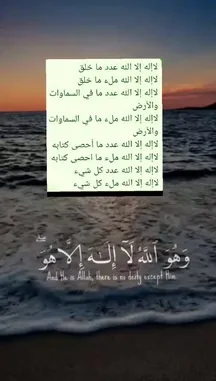 لاإله إلا الله عدد ما خلق
لاإله إلا الله ملء ما خلق
لاإله إلا الله عدد ما في السماوات
والأرض
لاإله إلا الله ملء ما في السماوات
والأرض
لاإله إلا الله عدد ما أحصى كتابه
لاإله إلا الله ملء ما احصى كتابه
لاإله إلا الله عدد كل شيء
لاإله إلا الله ملء كل شيء
وَهُوَ ٱللَّهُ لَآ إِلَٰهَ إِلَّا هُوَ
And He is Allah, there is no deity except Him